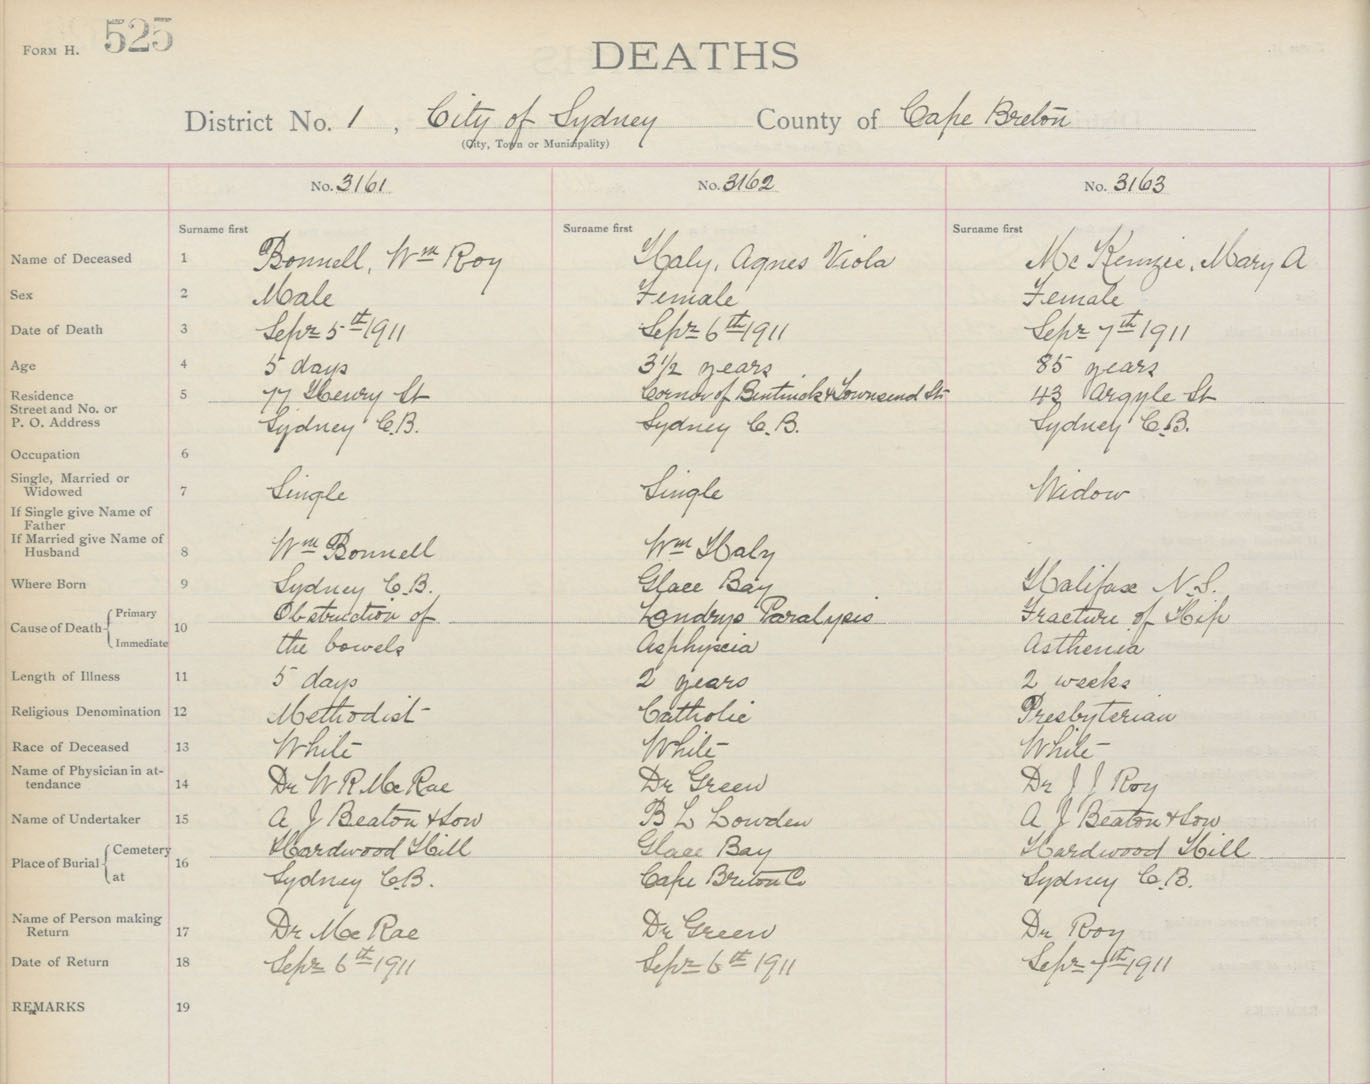 FORM H. 525
DEATHS
District No. 1 , City of Sydney County of Cape Breton
(City, Town or Municipality)
No. 3161 No. 3162 No. 3163
Surname first Surname first Surname first
Name of Deceased 1 Bonnell, Wm Roy Haly, Agnes Viola Mc Kenzie, Mary A
Sex 2 Male Female Female
Date of Death 3 Sepr 5th 1911 Sepr 6th 1911 Sepr 7th 1911
Age 4 5 days 3 1/2 years 85 years
Residence 5 77 Henry St Corner of Bentinck & Townsend Sts 43 Argyle St
Street and No. or
P. O. Address Sydney C.B. Sydney C.B. Sydney C.B.
Occupation 6
Single, Married or
Widowed 7 Single Single Widow
If Single give Name of
Father
If Married give Name of
Husband 8 Wm Bonnell Wm Haly
Where Born 9 Sydney C.B. Glace Bay Halifax N.S.
Cause of Death Primary 10 Obstruction of Landrys Paralysis Fracture of Hip
Immediate the bowels Asphyxia Asthenia
Length of Illness 11 5 days 2 years 2 weeks
Religious Denomination 12 Methodist Catholic Presbyterian
Race of Deceased 13 White White White
Name of Physician in at-
tendance 14 Dr W R Mc Rae Dr Green Dr J J Roy
Name of Undertaker 15 A J Beaton & Son B L Lowden A J Beaton & Son
Place of Burial Cemetery 16 Hardwood Hill Glace Bay Hardwood Hill
at Sydney C.B. Cape Breton Co Sydney C.B.
Name of Person making
Return 17 Dr Mc Rae Dr Green Dr Roy
Date of Return 18 Sepr 6th 1911 Sepr 6th 1911 Sepr 7th 1911
REMARKS 19